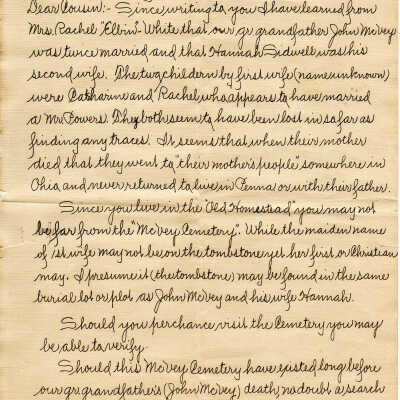 Dear Cousin:- Since writing to you I have learned from
Mrs. Rachel "Elbin" White that our gr. grandfather John McVey
was twice married and that Hannah Sidwell was his
second wife. The two childern by first wife (name unknown)
were Catharine and Rachel, who appears to have married
a Mr. Powers. They both seem to have been lost in so far as
finding any traces. It seems that when their mother
died that they went to "their mother's people" somewhere in
Ohio, and never returned to live in Penna. or with their father.
Since you live in the "Old Homestead" you may not
be far from the "McVey Cemetery". While the maiden name
of 1st. wife may not be on the tombstone, yet her first or Christian
may. I presume it (the tombstone) may be found in the same
burial lot or plot as John McVey and his wife Hannah.
Should you perchance visit the Cemetery you may
be able to verify.
Should this McVey Cemetery have existed long before
our gr. grandfather's (John McVey) death, no doubt a search